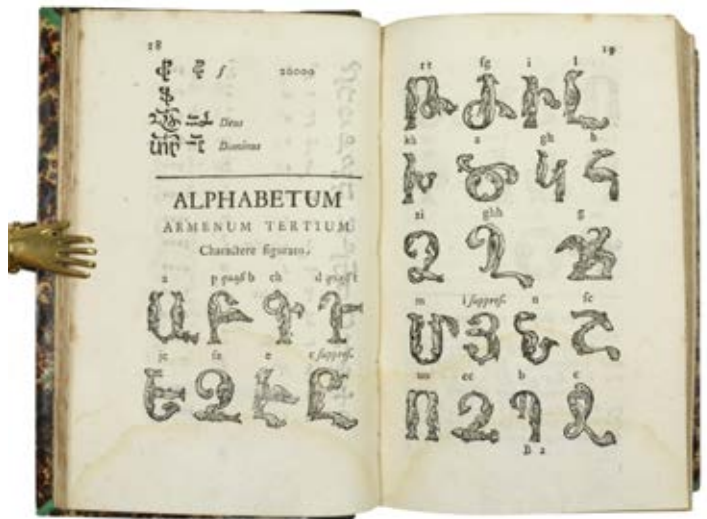 18
ſ 20000
Deus
Dominus
ALPHABETUM
ARMENUM TERTIUM
Charactere figurato.
a p quaſi b ch d quaſi t
Ա Բ Գ Դ
je ſa e e ſuppreſ.
Ե Զ Է Ը
19
tt ſg i l
Թ Ժ Ի Լ
kh z gh h
Խ Ծ Կ Հ
zi ghh g
Ձ Ղ Ճ
m i ſuppreſ. n ſc
Մ Յ Ն Շ
uo cc b c
Ո Չ Պ Ջ
B 2